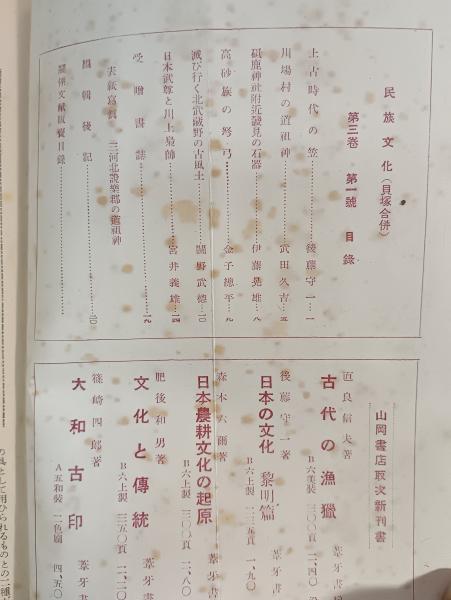 民族文化(貝塚合併)
第三卷 第一號 目錄
上古時代の笠……後藤守一…一
川場村の道祖神……武田久吉…五
砥鹿神社附近發見の石器……伊藤晃雄…八
高砂族の弩弓……金子總平…九
滅び行く北武藏野の古風土……關野武德…一〇
日本武尊と川上梟帥……宮井義雄…一四
受贈書誌……一九
表紙寫眞 三河北設樂郡の道祖神
編輯後記……二〇
文獻販賣目錄……
山岡書店取次新刊書
直良信夫著
古代の漁獵
B六美裝 三〇〇頁 二、四〇 葦牙書
後藤守一著
日本の文化 黎明篇
B六上製 二三五頁 一、九〇 葦牙書
森本六爾著
日本農耕文化の起原
B六上製 三〇〇頁 二、八〇 葦牙書
肥後和男著
文化と傳統
B六上製 三五〇頁 二、二〇 葦牙書
篠崎四郎著
大和古印
A五和裝 一色扇 四、五〇
の具として用ひられるものとの二種